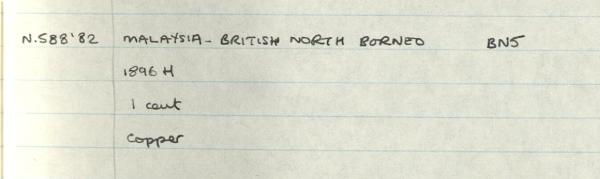 N.588'82 MALAYSIA - BRITISH NORTH BORNEO BN5
1896 H
1 cent
Copper